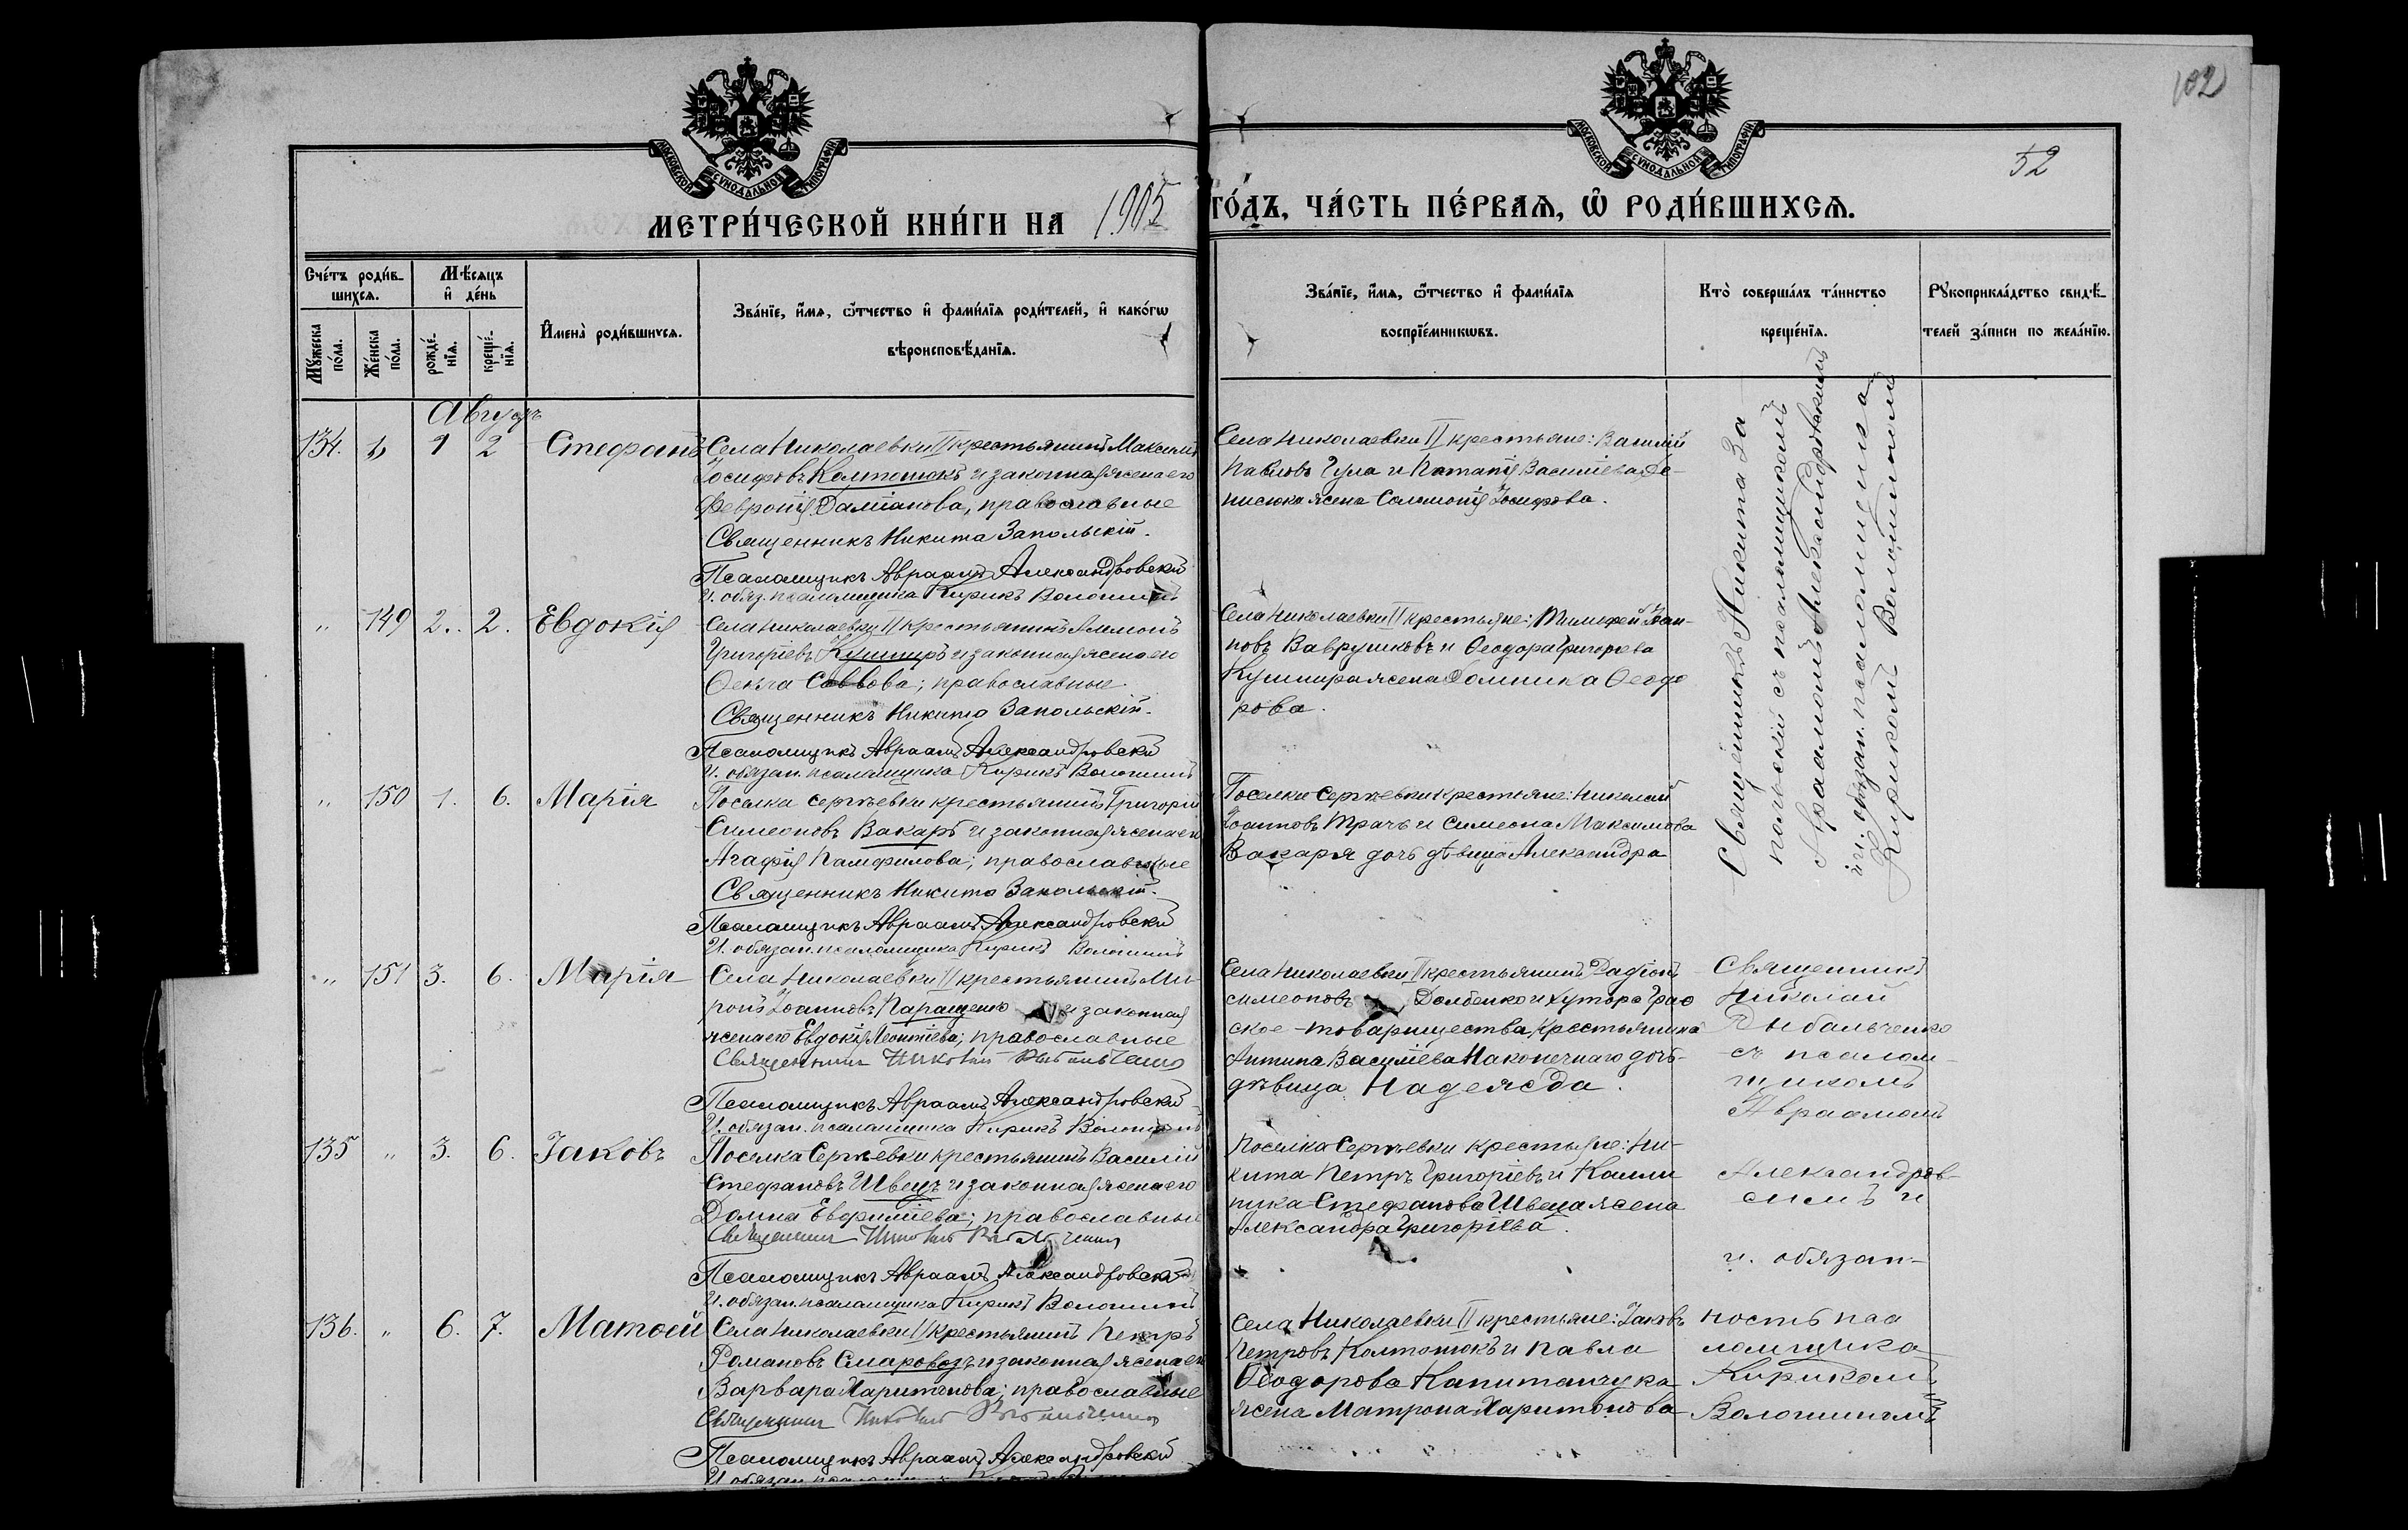 102
52
МОСКОВСКОЙ СѴНОДАЛЬНОЙ ТИПОГРАФІИ
МОСКОВСКОЙ СѴНОДАЛЬНОЙ ТИПОГРАФІИ
МЕТРИ́ЧЕСКОЙ КНИ́ГИ НА 1905 ГО́ДЪ, ЧА́СТЬ ПЕ́РВАѦ, Ѽ РОДИ́ВШИХСѦ.
Сче́тъ роди́в-
шихсѧ.
Мѣ́сѧцъ
и҆ де́нь
Мꙋ́жеска
по́ла.
Же́нска
по́ла.
рожде́-
нїѧ.
креще́-
нїѧ.
И҆мена̀ роди́вшихсѧ.
Зва́нїе, и҆́мѧ, ѻ҆́тчество и҆ фами́лїѧ роди́телей, и҆ како́гѡ
вѣроисповѣ́данїѧ.
Зва́нїе, и҆́мѧ, ѻ҆́тчество и҆ фами́лїѧ
воспрїе́мникѡвъ.
Кто̀ соверша́лъ та́инство
креще́нїѧ.
Рꙋкоприкла́дство свидѣ́-
телей за́писи по жела́нїю.
Августъ
134. „ 1 2 Стефанъ
Села Николаевки II крестьянинъ Максимъ
Іосифовъ Колтонюкъ и законная жена его
Февронія Даміанова, православные
Священникъ Никита Запольскій.
Псаломщикъ Авраамъ Александровскій
И. обяз. псаломщика Кирикъ Волошинъ
Села Николаевки II крестьяне: Василій
Павловъ Гула и Потапія Василіева Де-
нисюка жена Соломонія Іосифова.
Священникъ Никита За
польскій съ псаломщикомъ
Авраамомъ Александровскимъ
и и. обязан. псаломщика
Кирикомъ Волошиномъ
„ 149 2. 2. Евдокія
Села Николаевки II крестьянинъ Филимонъ
Григоріевъ Кушниръ и законная жена его
Ѳекла Саввова; православные.
Священникъ Никита Запольскій.
Псаломщикъ Авраамъ Александровскій
И. обязан. псаломщика Кирикъ Волошинъ
Села Николаевки II крестьяне: Тимофей Іоан-
новъ Ваврушковъ и Ѳеодора Григорьева
Кушнира жена Домника Ѳеодо
рова.
„ 150 1. 6. Марія
Поселка Сергѣевки крестьянинъ Григорій
Симеоновъ Вакарь и законная жена его
Агафія Памфилова; православные
Священникъ Никита Запольскій.
Псаломщикъ Авраамъ Александровскій
И. обязан. псаломщика Кирикъ Волошинъ
Поселка Сергѣевки крестьяне: Николай
Іоанновъ Трачъ и Симеона Максимова
Вакаря дочь дѣвица Александра
„ 151 3. 6. Марія
Села Николаевки II крестьянинъ Ми-
ронъ Іоанновъ Паращенко и законная
жена его Евдокія Леонтіева; православные
Священникъ Николай Рыбальченко
Псаломщикъ Авраамъ Александровскій
И. обязан. псаломщика Кирикъ Волошинъ
Села Николаевки II крестьянинъ Радіонъ
Симеоновъ Долбенко и хутора Грас
ское-товарищества крестьянина
Антипа Василіева Наконечнаго дочь-
дѣвица Надежда.
Священникъ
Николай
Рыбальченко
съ псалом-
щикомъ
Авраамомъ
Александров-
скимъ и
и. обязан-
ность пса
ломщика
Кирикомъ
Волошиномъ
135 „ 3. 6. Іаковъ
Поселка Сергѣевки крестьянинъ Василій
Стефановъ Швецъ и законная жена его
Домна Евфиміева; православные
Священникъ Николай Рыбальченко
Псаломщикъ Авраамъ Александровскій
И. обязан. псаломщика Кирикъ Волошинъ
Поселка Сергѣевки крестьяне: Ни-
кита Петръ Григоріевъ и Калли
ника Стефанова Швеца жена
Александра Григоріева.
136. „ 6. 7. Матѳей
Села Николаевки II крестьянинъ Петръ
Романовъ Смаровозъ и законная жена его
Варвара Харитонова; православные
Священникъ Николай Рыбальченко
Псаломщикъ Авраамъ Александровскій
Села Николаевки II крестьяне: Іаковъ
Петровъ Колтонюкъ и Павла
Ѳеодорова Капитанчука
жена Матрона Харитонова